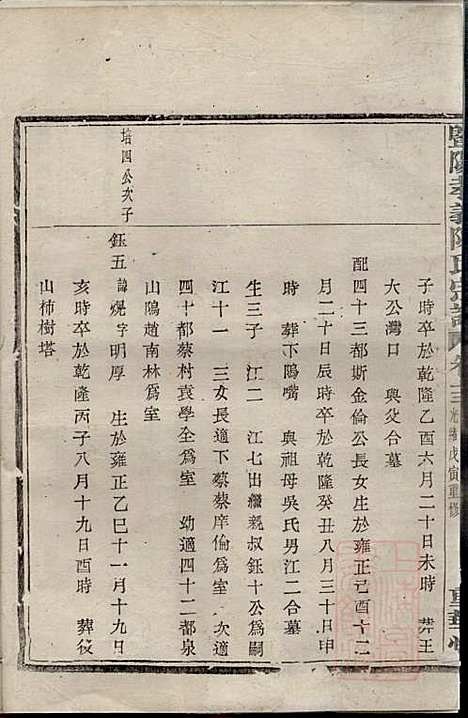 暨陽孝義陳氏宗譜 卷十三 光緒戊寅重修
子時卒於乾隆乙酉六月二十日未時 葬王
大公灣口 與父合墓
配四十三都斯金倫公長女生於雍正己酉十二
月二十日辰時卒於乾隆癸丑八月三十日申
時 葬下鴟嘴 與祖母吳氏男江二合墓
生三子 江二 江七出繼親叔鈺十公爲嗣
江十一 三女長適下蔡蔡庠倫爲室 次適
四十都蔡村袁學全爲室 幼適四十二都泉
山鴟趙南林爲室
培四公次子
鈺五 諱焜字明厚 生於雍正乙巳十一月十九日
亥時卒於乾隆丙子八月十九日酉時 葬後
山柿樹塔